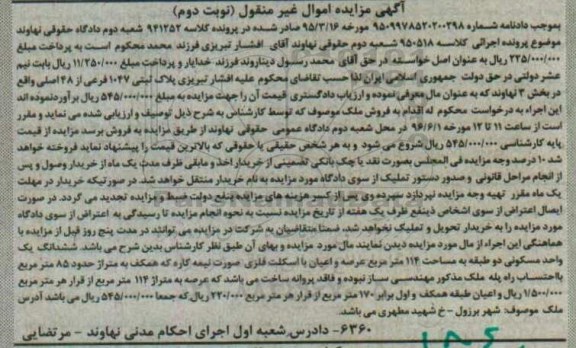 آگهی مزایده اموال غیر منقول (نوبت دوم)
بموجب دادنامه شماره ۹۵۰۹۹۷۸۵۲۰۲۰۰۲۹۸ مورخه ۹۵/۳/۱۶ صادر شده در پرونده کلاسه ۹۴۱۲۵۲ شعبه دوم دادگاه حقوقی نهاوند
موضوع پرونده اجرائی کلاسه ۹۵۰۵۱۸ شعبه دوم حقوقی نهاوند آقای افشار تبریزی فرزند محمد محکوم است به پرداخت مبلغ
۲۲۵/۰۰۰/۰۰۰ ریال به عنوان اصل خواسته در حق آقای محمد رسول دیناروند فرزند خدایار و پرداخت مبلغ ۱۱/۲۵۰/۰۰۰ ریال بابت نیم
عشر دولتی در حق دولت جمهوری اسلامی ایران لذا حسب تقاضای محکوم علیه افشار تبریزی پلاک ثبتی ۱۰۴۷ فرعی از ۴۸ اصلی واقع
در بخش ۳ نهاوند که به عنوان مال معرفی نموده و ارزیاب دادگستری قیمت آن را جهت مزایده به مبلغ ۵۴۵/۰۰۰/۰۰۰ ریال برآورد نموده اند
این اجراء به درخواست محکوم له اقدام به فروش ملک موصوف که توسط کارشناس به شرح ذیل توصیف و ارزیابی شده می نماید و مقرر
است از ساعت ۱۱ تا ۱۲ مورخه ۹۶/۶/۱ در محل شعبه دوم دادگاه عمومی حقوقی نهاوند از طریق مزایده به فروش برسد مزایده از قیمت
پایه کارشناسی ۵۴۵/۰۰۰/۰۰۰ ریال شروع می شود و به هر شخص حقیقی یا حقوقی که بالاترین قیمت را پیشنهاد نماید فروخته خواهد
شد ۱۰ درصد وجه مزایده فی المجلس بصورت نقد یا چک بانکی تضمینی از خریدار اخذ و مابقی ظرف مدت یک ماه از خریدار وصول و پس
از انجام مراحل قانونی و صدور دستور تملیک از سوی دادگاه مورد مزایده به نام خریدار منتقل خواهد شد. در صورتیکه خریدار در مهلت
یک ماه مقرر تهیه وجه مزایده نپردازد سپرده وی پس از کسر هزینه های مزایده بنفع دولت ضبط و مزایده تجدید می گردد. در صورت
ایصال اعتراض از سوی اشخاص ذینفع ظرف یک هفته از تاریخ مزایده نسبت به نحوه انجام مزایده تا رسیدگی به اعتراض از سوی دادگاه
مورد مزایده را به خریدار تحویل و تملیک نخواهد شد. ضمنا متقاضیان به شرکت در مزایده می توانند در مدت پنج روز قبل از مزایده با
هماهنگی این اجراء از مال مورد مزایده دیدن نمایند مال مورد مزایده و بهای آن طبق نظر کارشناس بدین شرح می باشد. ششدانگ یک
واحد مسکونی دو طبقه به مساحت ۱۱۴ متر مربع عرصه و اعیان با اسکلت فلزی صورت نیمه کاره که همکف به متراژ حدود ۸۵ متر مربع
بااحتساب راه پله ملک مذکور مهندسی ساز نبوده و فاقد پروانه ساخت می باشد که عرصه به متراژ ۱۱۴ متر مربع از قرار هر متر مربع
۱/۵۰۰/۰۰۰ ریال و اعیان طبقه همکف و اول برابر ۱۷۰ متر مربع از قرار هر متر مربع ۲/۲۰۰/۰۰۰ ریال که جمعا ۵۴۵/۰۰۰/۰۰۰ ریال می باشد آدرس
ملک موصوف: شهر برزول - خ شهید مطهری می باشد.
۶۳۶۰- دادرس شعبه اول اجرای احکام مدنی نهاوند - مرتضایی